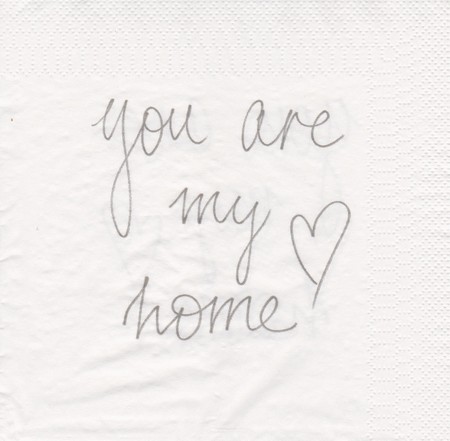 you are
my
home